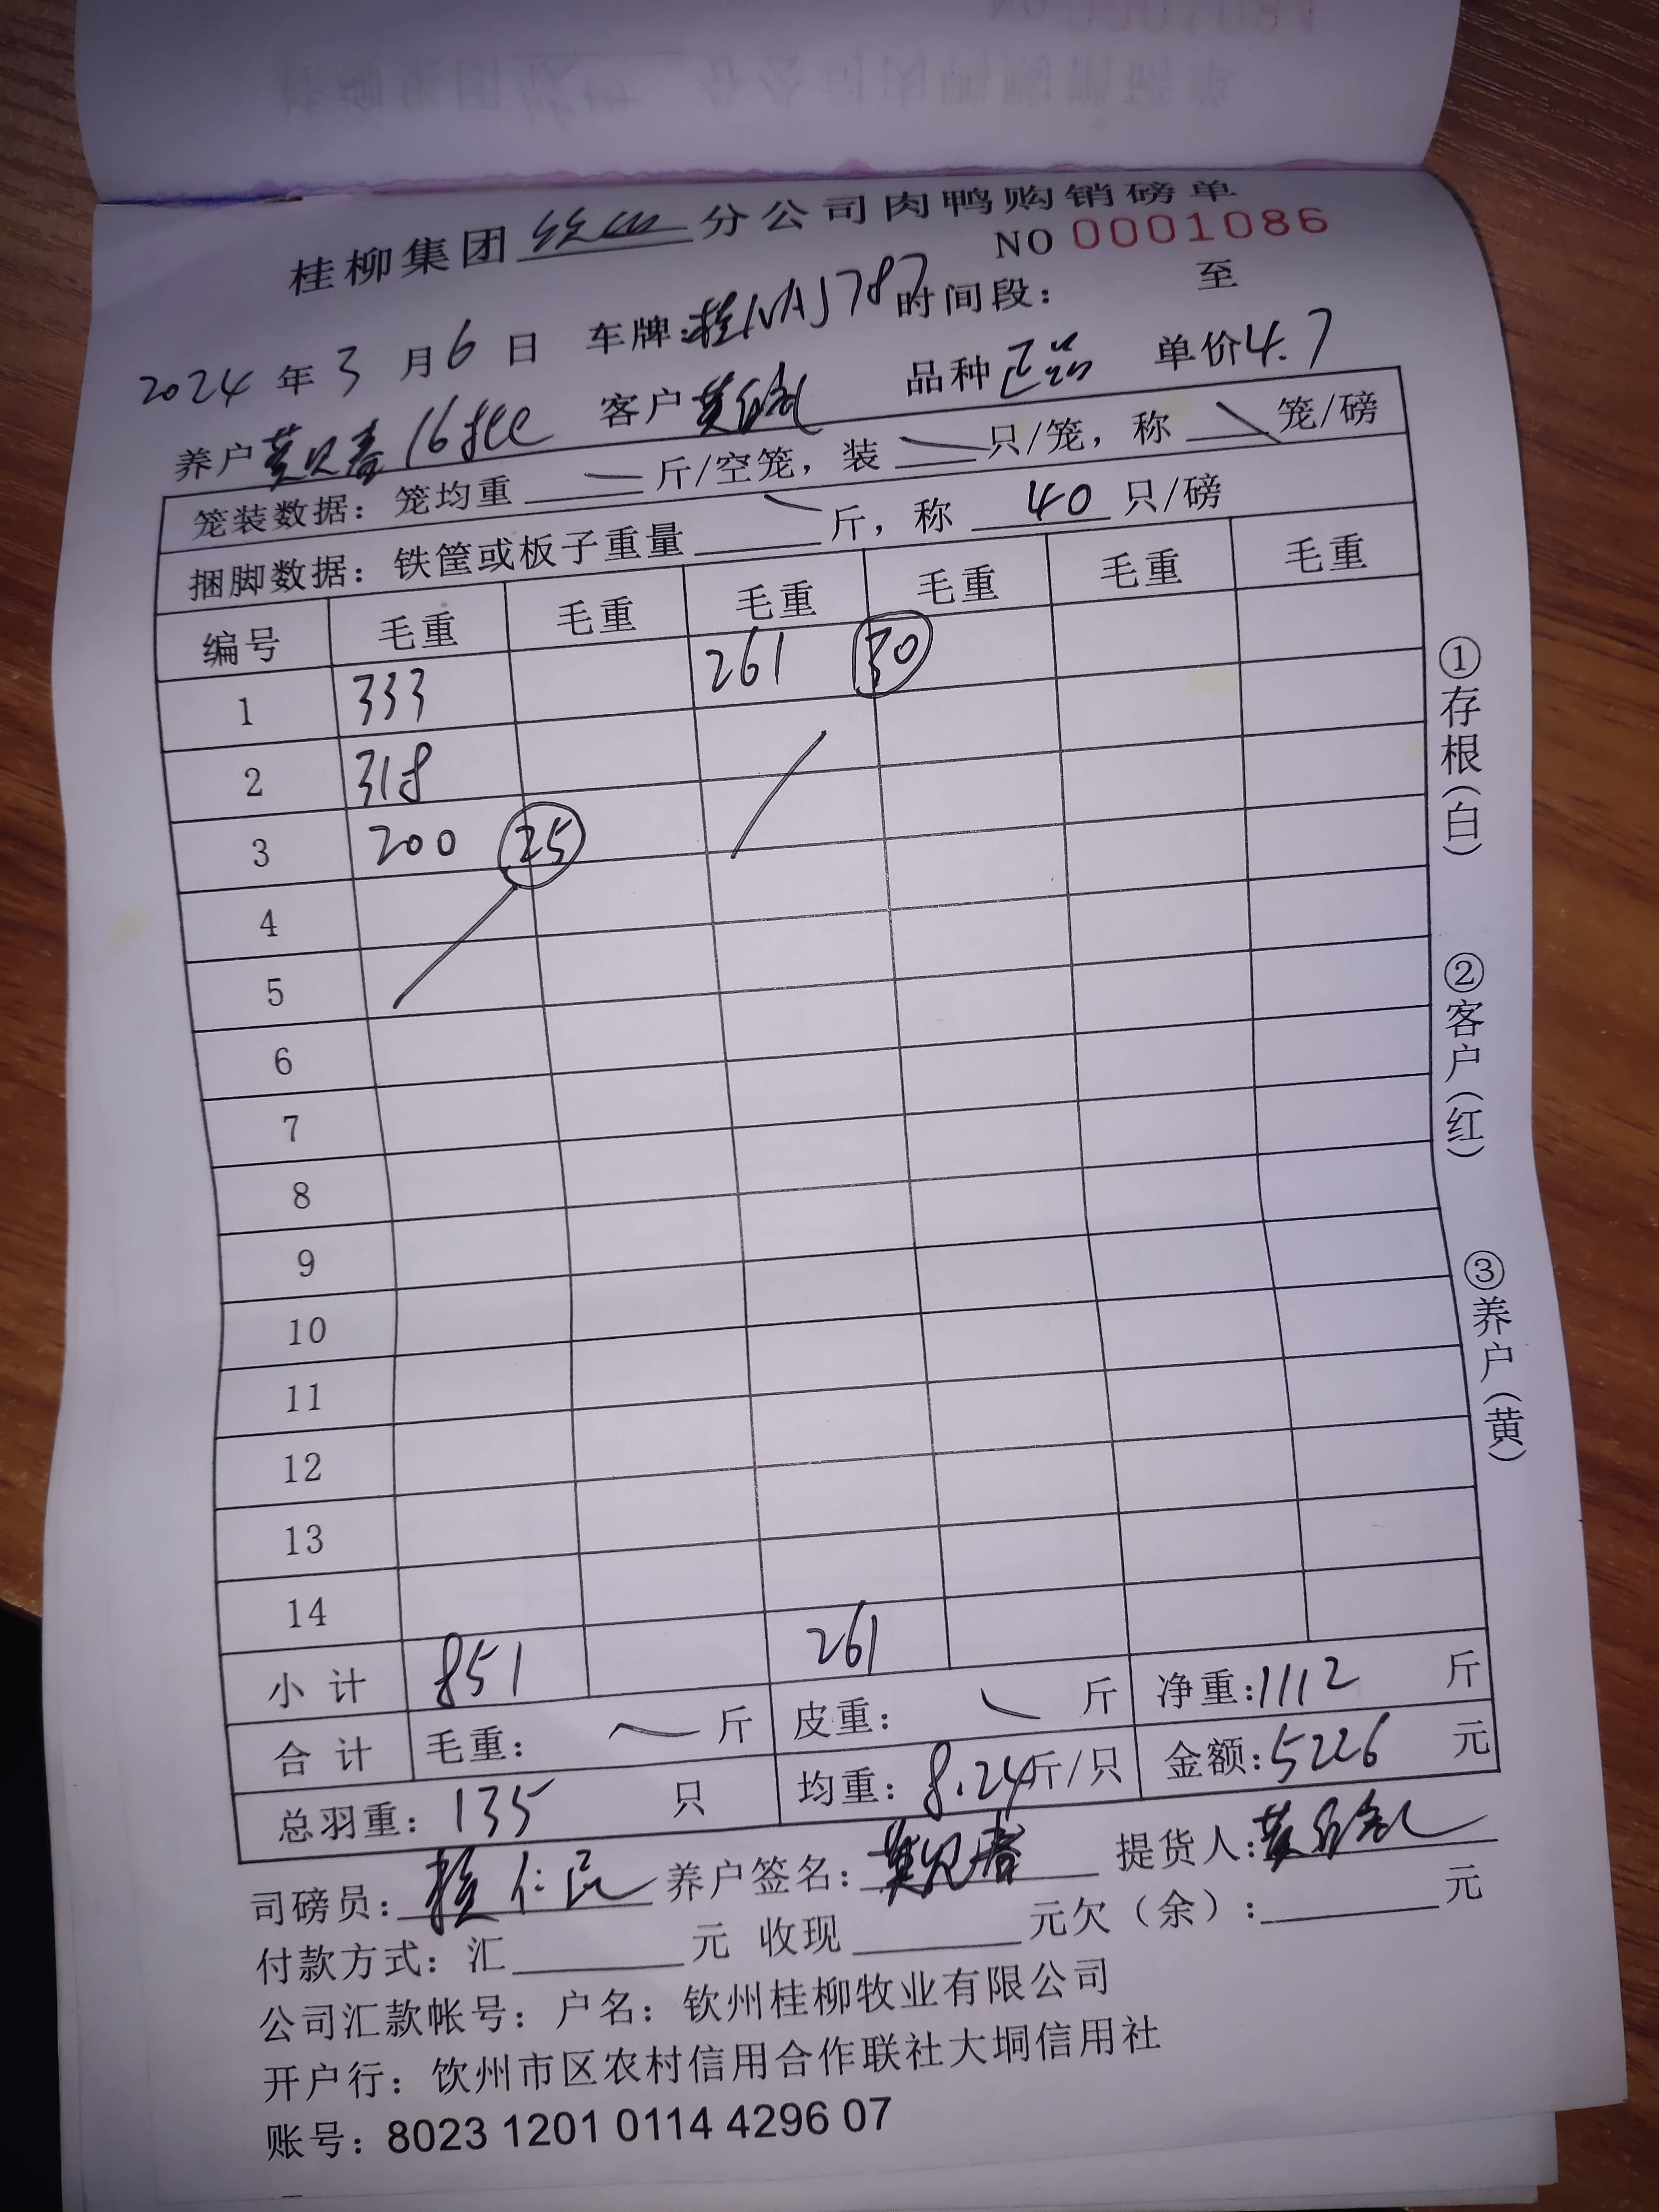 桂柳集团 分公司肉鸭购销磅单
NO 0001086
2024 年 3 月 6 日 车牌:桂NAJ787 时间段: 至
养户 16批 客户 品种 正品 单价 4.7
笼装数据: 笼均重 斤/空笼, 装 只/笼, 称 笼/磅
捆脚数据: 铁筐或板子重量 斤, 称 40 只/磅
编号 毛重 毛重 毛重 毛重 毛重 毛重
1 333 261 30
2 318
3 200 25
4
5
6
7
8
9
10
11
12
13
14
小 计 851 261
合 计 毛重: 斤 皮重: 斤 净重:1112 斤
总羽重: 135 只 均重: 8.24斤/只 金额:5226 元
司磅员: 养户签名: 提货人:
付款方式: 汇 元 收现 元欠（余）: 元
公司汇款帐号: 户名: 钦州桂柳牧业有限公司
开户行: 钦州市区农村信用合作联社大垌信用社
账号: 8023 1201 0114 4296 07
①存根（白）
②客户（红）
③养户（黄）